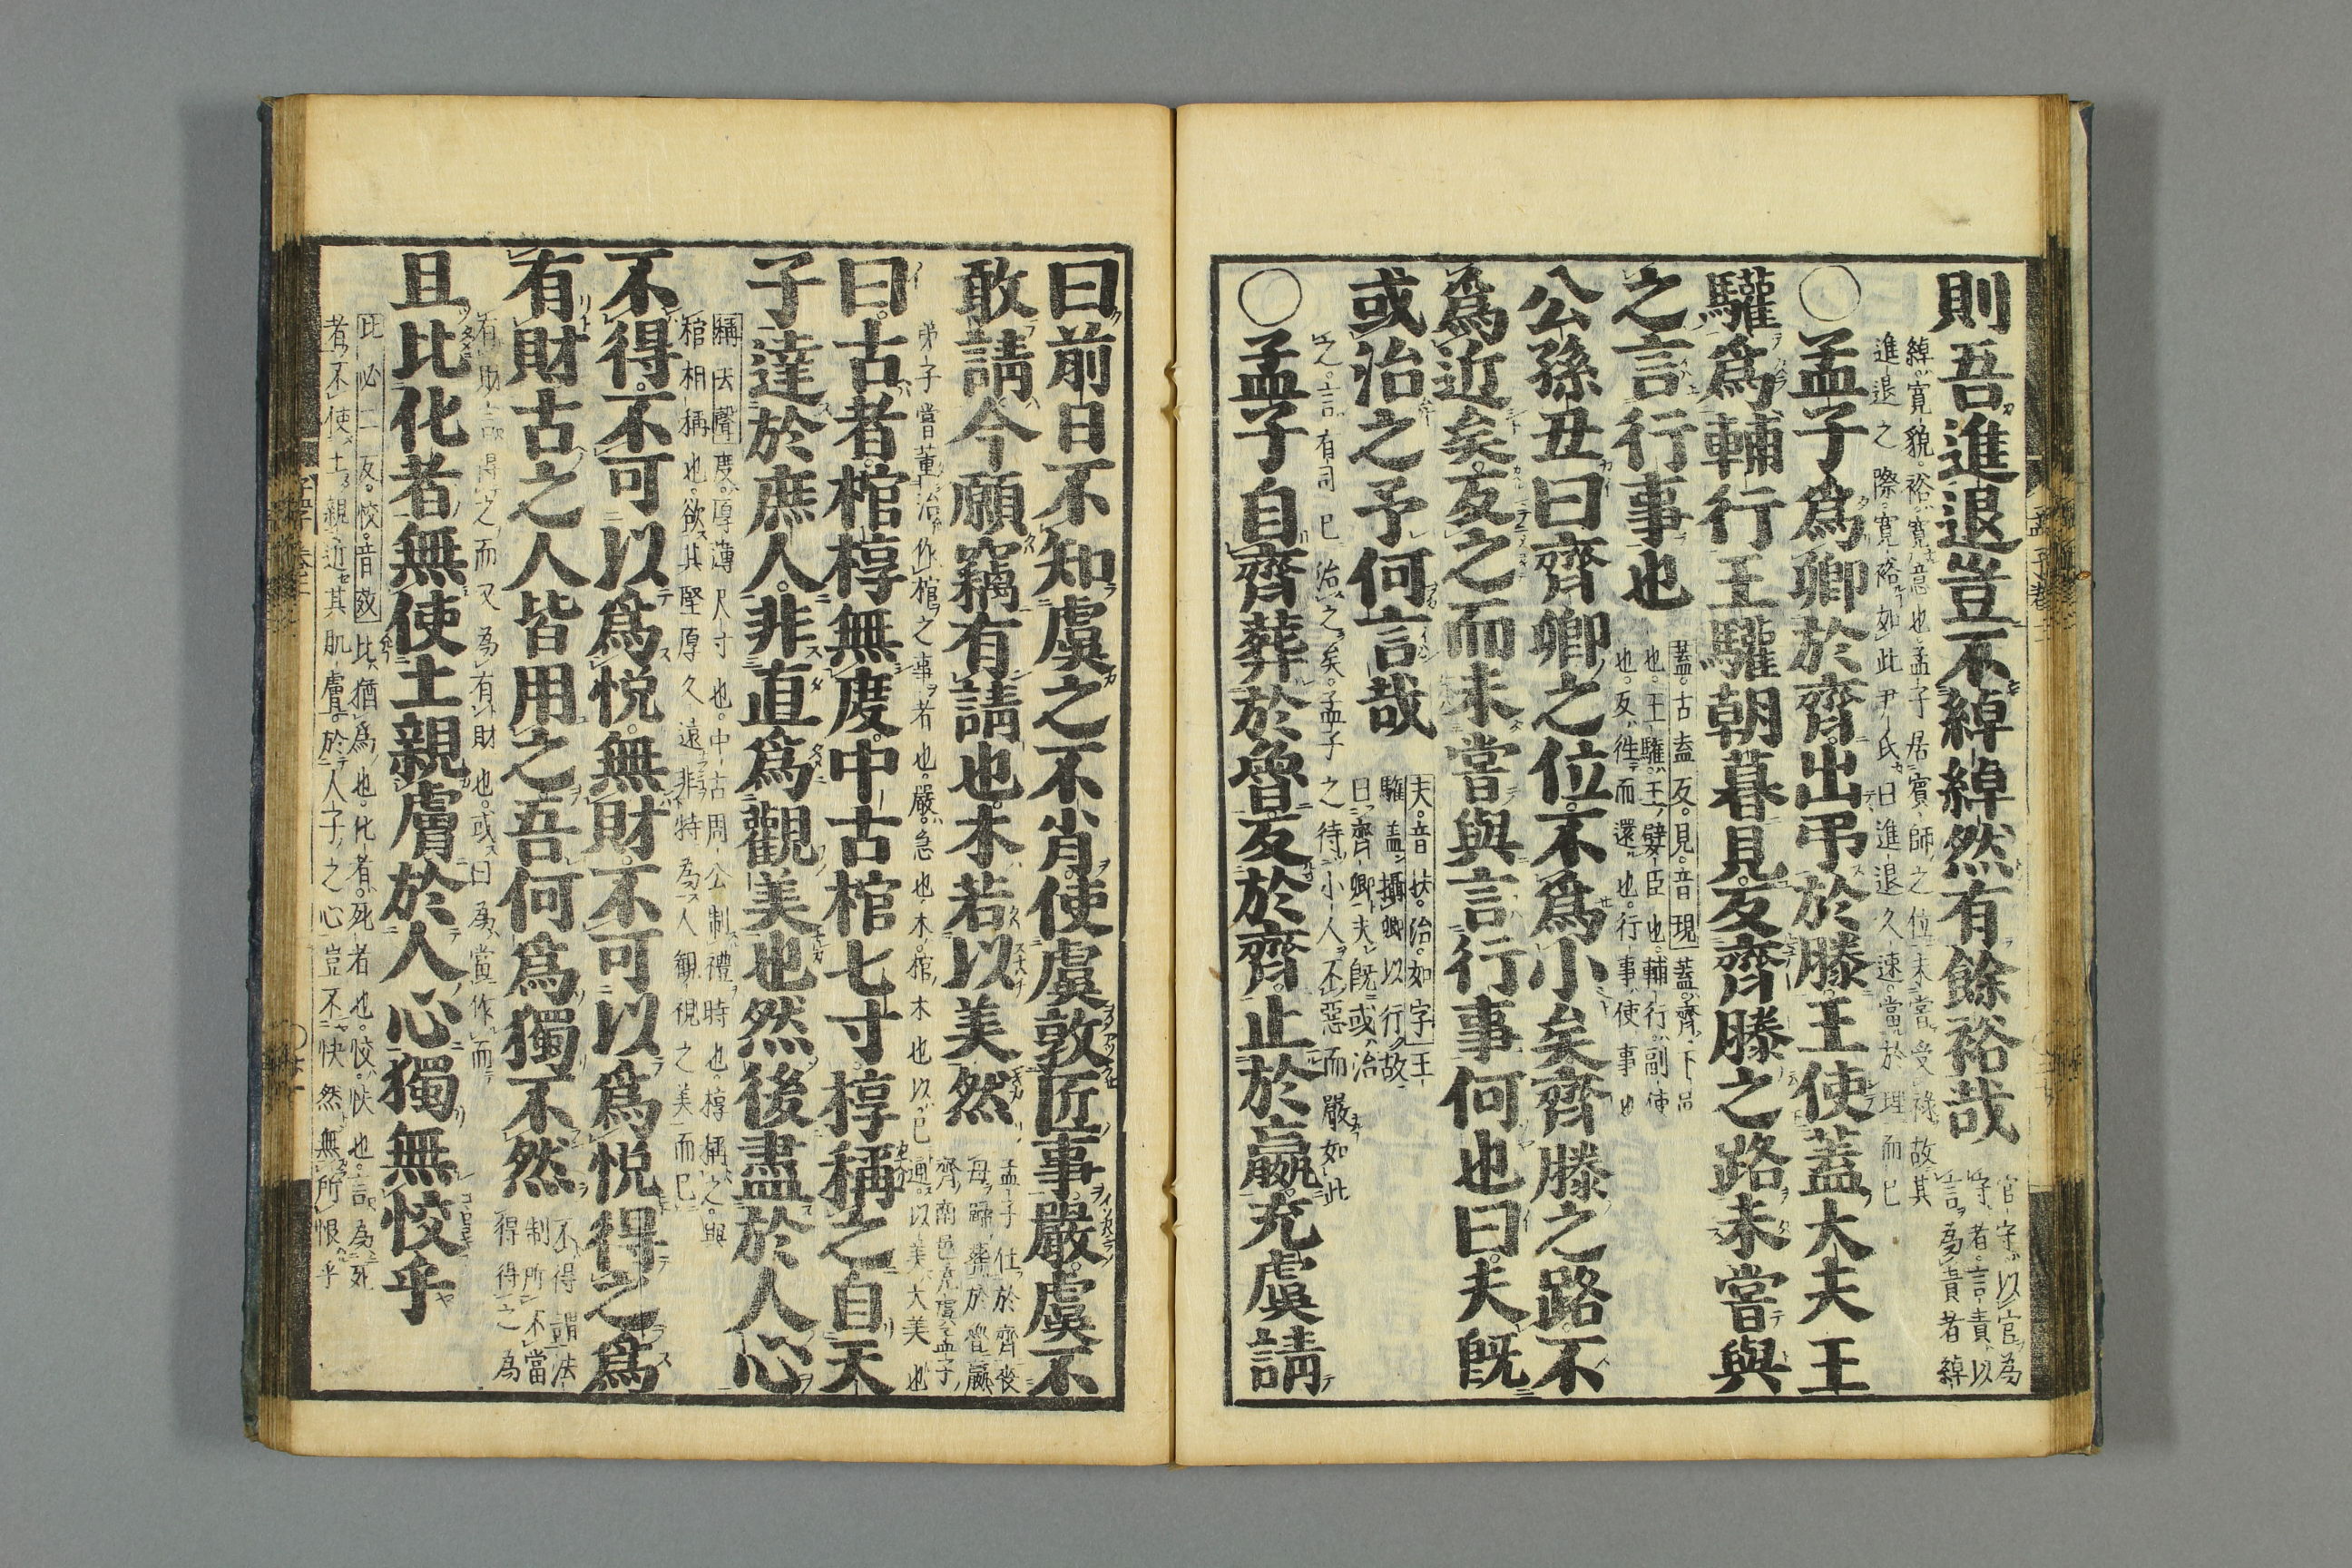 則吾進退豈不綽綽然有餘裕哉
官守以官為守者言責以言為責者綽
綽寛貌裕寛意也孟子居賓師之位未嘗受祿故其
進退之際寛裕如此尹氏曰進退久速當於理而已
○孟子爲卿於齊出弔於滕王使蓋大夫王
驩爲輔行王驩朝暮見反齊滕之路未嘗與
之言行事也
蓋古盍反見音現蓋齊下邑
也王驩王嬖臣也輔行副使
也反往而還也行事使事也
公孫丑曰齊卿之位不爲小矣齊滕之路不
爲近矣反之而未嘗與言行事何也曰夫既
或治之予何言哉
夫音扶治如字王
驩蓋攝卿以行故
曰齊卿夫既或治
之言有司已治之矣孟子之待小人不惡而嚴如此
○孟子自齊葬於魯反於齊止於嬴充虞請
曰前日不知虞之不肖使虞敦匠事嚴虞不
敢請今願竊有請也木若以美然
孟子仕於齊喪
母歸葬於魯嬴
齊南邑充虞孟子
弟子嘗董治作棺之事者也嚴急也木棺木也以已通以美大美也
曰古者棺椁無度中古棺七寸椁稱之自天
子達於庶人非直爲觀美也然後盡於人心
稱去聲度厚薄尺寸也中古周公制禮時也椁稱之與
棺相稱也欲其堅厚久遠非特為人觀視之美而已
不得不可以爲悅無財不可以爲悅得之爲
有財古之人皆用之吾何爲獨不然
不得謂法
制所不當
得得之為
有財言得之而又為有財也或曰為當作而
且比化者無使土親膚於人心獨無恔乎
比必二反恔音效比猶為也化者死者也恔快也言為死
者不使土親近其肌膚於人子之心豈不快然無所恨乎